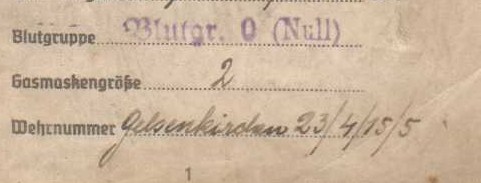 Blutgruppe Blutgr. 0 (Null)
Gasmaskengröße 2
Wehrnummer Gelsenkirchen 23/4/15/5
1